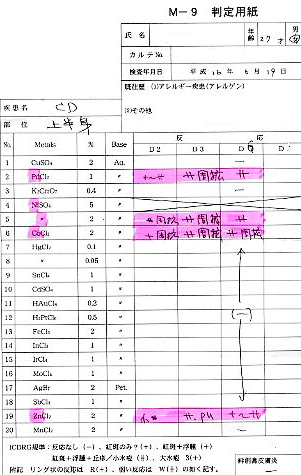 M-9 判定用紙
氏名 年齢 27才 男
カルテNo.
検査年月日 平成 16年 5月 19日
既往歴 (1)アレルギー疾患(アレルゲン)
(2)その他
疾患名 CD
部位 上半身
反応
No. Metals % Base D2 D3
1 CuSO₄ 2 Aq. −
2 PdCl₂ 1 〃 +~卄 卄周拡 卄
3 K₂Cr₂O₇ 0.4 〃 −
4 NiSO₄ 5 〃
5 〃 2 〃 周拡 卄周拡 卄
6 CoCl₂ 2 〃 +周拡 卄周拡 卄周拡
7 HgCl₂ 0.1 〃
8 〃 0.05 〃
9 SnCl₄ 1 〃
10 CdSO₄ 1 〃
11 HAuCl₄ 0.2 〃
12 H₂PtCl₆ 0.5 〃 (−)
13 FeCl₃ 2 〃
14 InCl₃ 1 〃
15 IrCl₄ 1 〃
16 MoCl₅ 1 〃
17 AgBr 2 Pet.
18 SbCl₃ 1 〃
19 ZnCl₂ 2 〃 +~卄
20 MnCl₂ 2 〃 −
ICDRG規準:反応なし(−)、紅斑のみ?(+)、紅斑+浮腫(+)
紅斑+浮腫+丘疹/小水疱(卄)、大水疱 3(+)
附記 リング状の反応は R(+)、弱い反応は W(+)の如く記す。
絆創膏皮膚炎